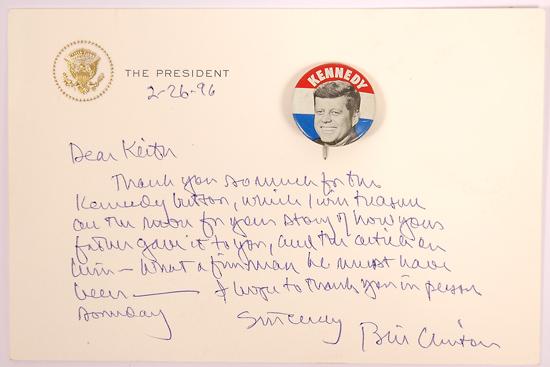 THE PRESIDENT
2-26-96
KENNEDY
Dear Keith
Thank you so much for the
Kennedy button, which I will treasure
all the more for your story of how your
father gave it to you, and the article on
him - What a fine man he must have
been — I hope to thank you in person
someday
Sincerely
Bill Clinton